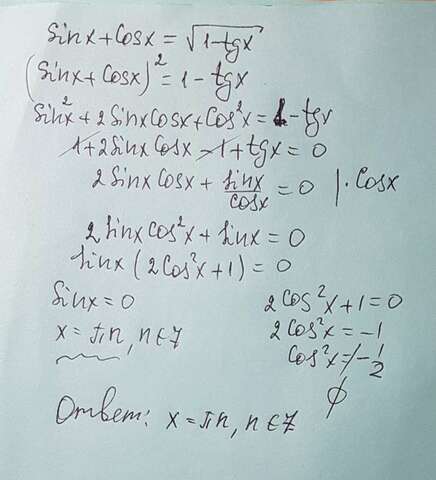 sinx + cosx = √(1 - tgx)
(sinx + cosx)² = 1 - tgx
sin²x + 2sinxcosx + cos²x = 1 - tgx
1 + 2sinxcosx - 1 + tgx = 0
2sinxcosx + sinx/cosx = 0 | · cosx
2sinxcos²x + sinx = 0
sinx(2cos²x + 1) = 0
sinx = 0 2cos²x + 1 = 0
x = πn, n∈Z 2cos²x = -1
cos²x ≠ -1/2
∅
Ответ: x = πn, n∈Z